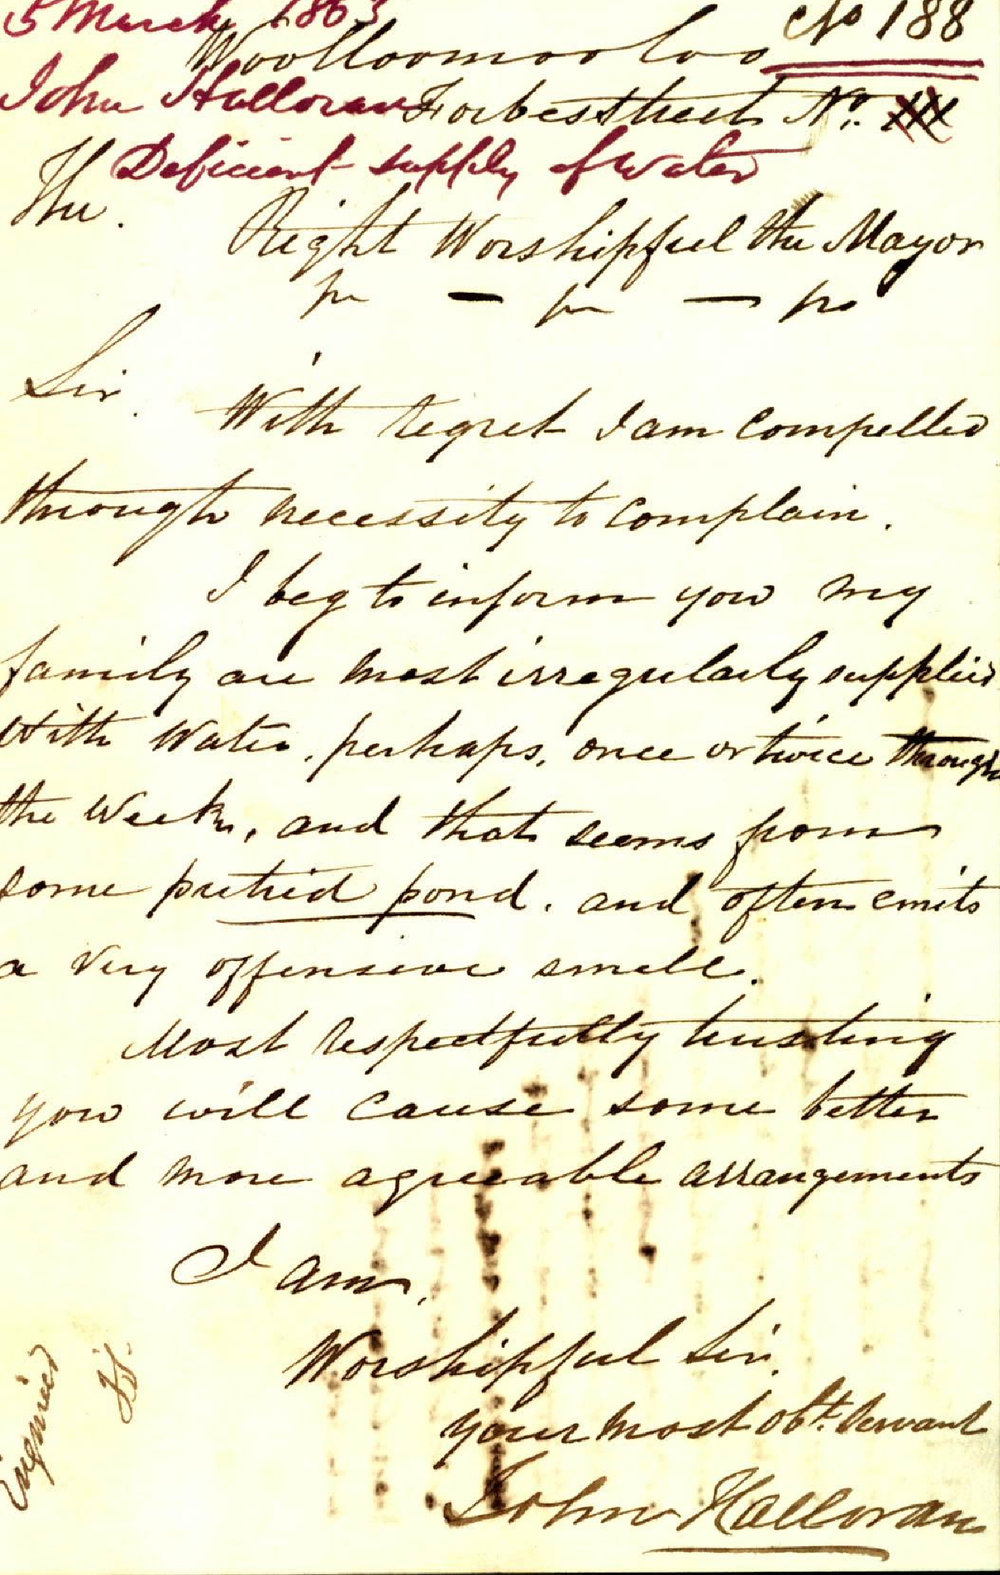 5 March 1863
No 188
Woolloomooloo
John Halloran
Forbes Street No.
Deficient supply of Water
The.
Right Worshipful the Mayor
Sir. With regret I am compelled
through necessity to complain.
I beg to inform you my
family are most irregularly supplied
With Water, perhaps, once or twice through
the Week, and that seems from
some putrid pond. and often emits
a very offensive smell.
Most respectfully trusting
you will cause some better
and more agreeable arrangements
I am,
Worshipful Sir,
your most obt. Servant
John Halloran